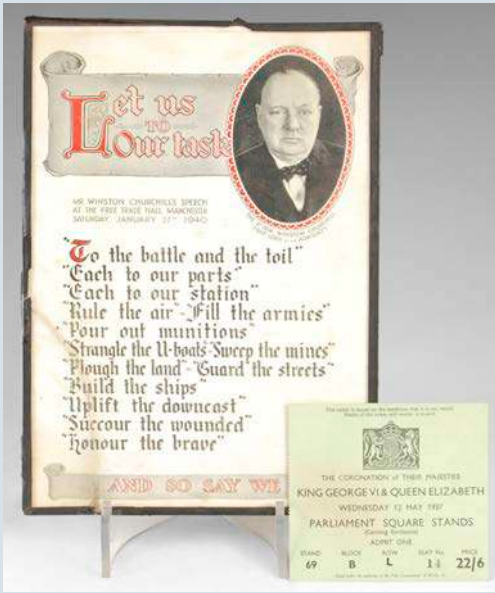 Let us
TO
Our task
MR WINSTON CHURCHILL'S SPEECH
AT THE FREE TRADE HALL, MANCHESTER
SATURDAY JANUARY 27TH 1940
"To the battle and the toil"
"Each to our parts"
"Each to our station"
"Rule the air"-"Fill the armies"
"Pour out munitions"
"Strangle the U-boats"-"Sweep the mines"
"Plough the land"-"Guard the streets"
"Build the ships"
"Uplift the downcast"
"Succour the wounded"
"Honour the brave"
AND SO SAY WE
THE CORONATION of THEIR MAJESTIES
KING GEORGE VI & QUEEN ELIZABETH
WEDNESDAY 12 MAY 1937
PARLIAMENT SQUARE STANDS
ADMIT ONE
STAND BLOCK ROW SEAT No. PRICE
69 B L 22/6